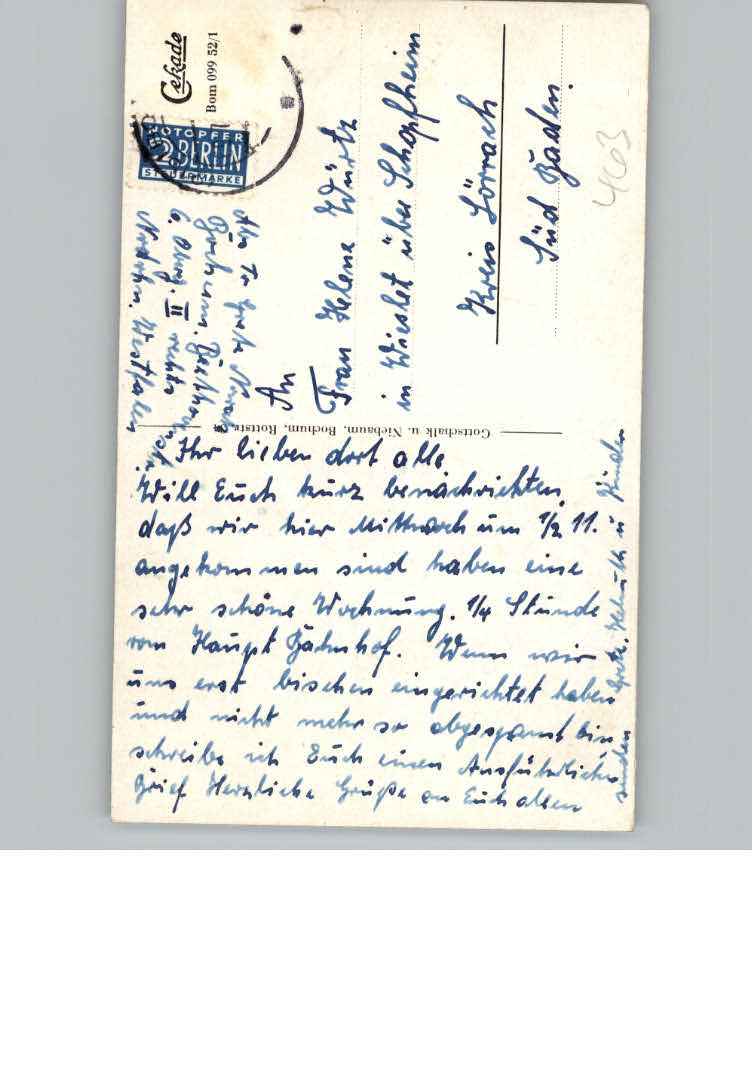 Cekade
Bom 099 52/1
NOTOPFER
2 BERLIN
STEUERMARKE
Abs
Bochum.
6. II rechts
Nordrh. Westfalen
An
Frau Helene Würtz
in Wieslet über Schopfheim
Kreis Lörrach
Süd Baden.
4603
Gottschalk u. Niebaum, Bochum, Rottstr.
Ihr lieben dort alle
Will Euch kurz benachrichten
daß wir hier Mittwoch um 1/2 11.
angekommen sind haben eine
sehr schöne Wohnung. 1/4 Stunde
vom Haupt Bahnhof. Wenn wir
uns erst bischen eingerichtet haben
und nicht mehr so abgespant bin
schreibe ich Euch einen Ausführlichen
Brief Herzliche Grüße an Euch allen
senden Grete, Helmuth u Kinder